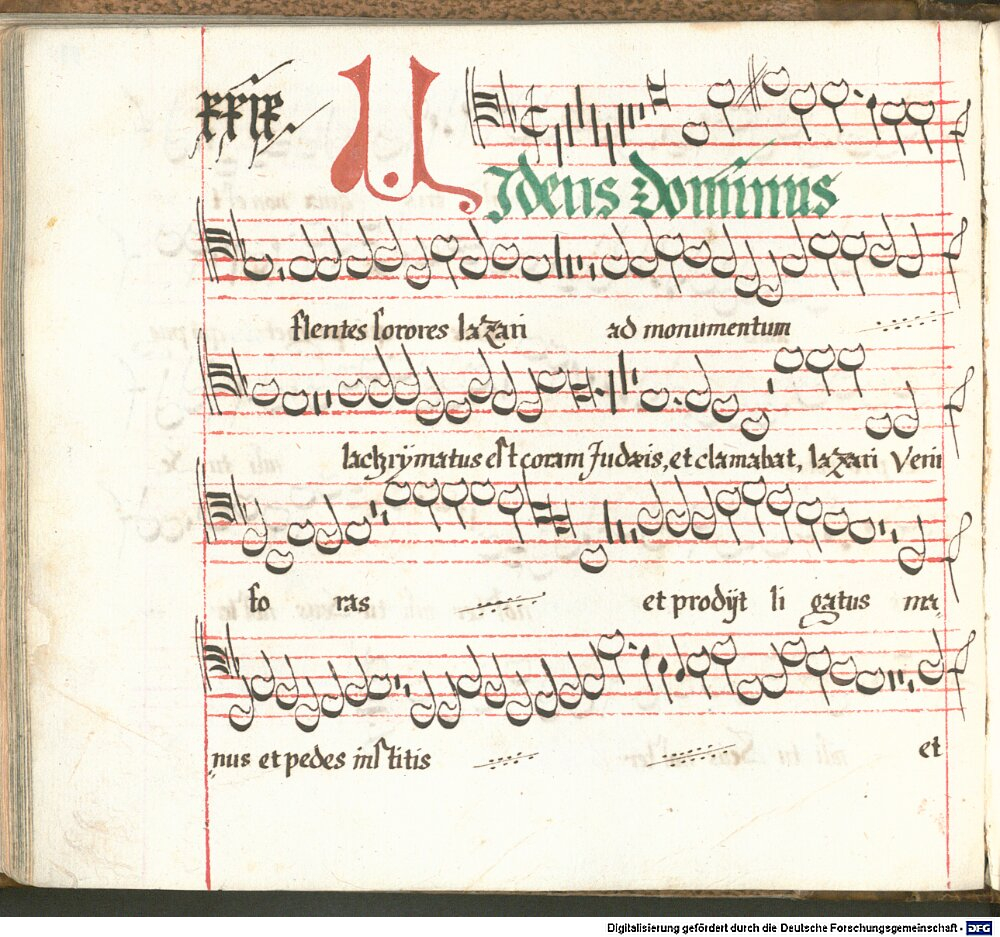 xxix.
VIdens Dominus
flentes sorores lazari ad monumentum
lachrÿmatus est coram Judæis, et clamabat, lazari Veni
fo ras et prodijt li gatus ma,
nus et pedes institis et
Digitalisierung gefördert durch die Deutsche Forschungsgemeinschaft - DFG